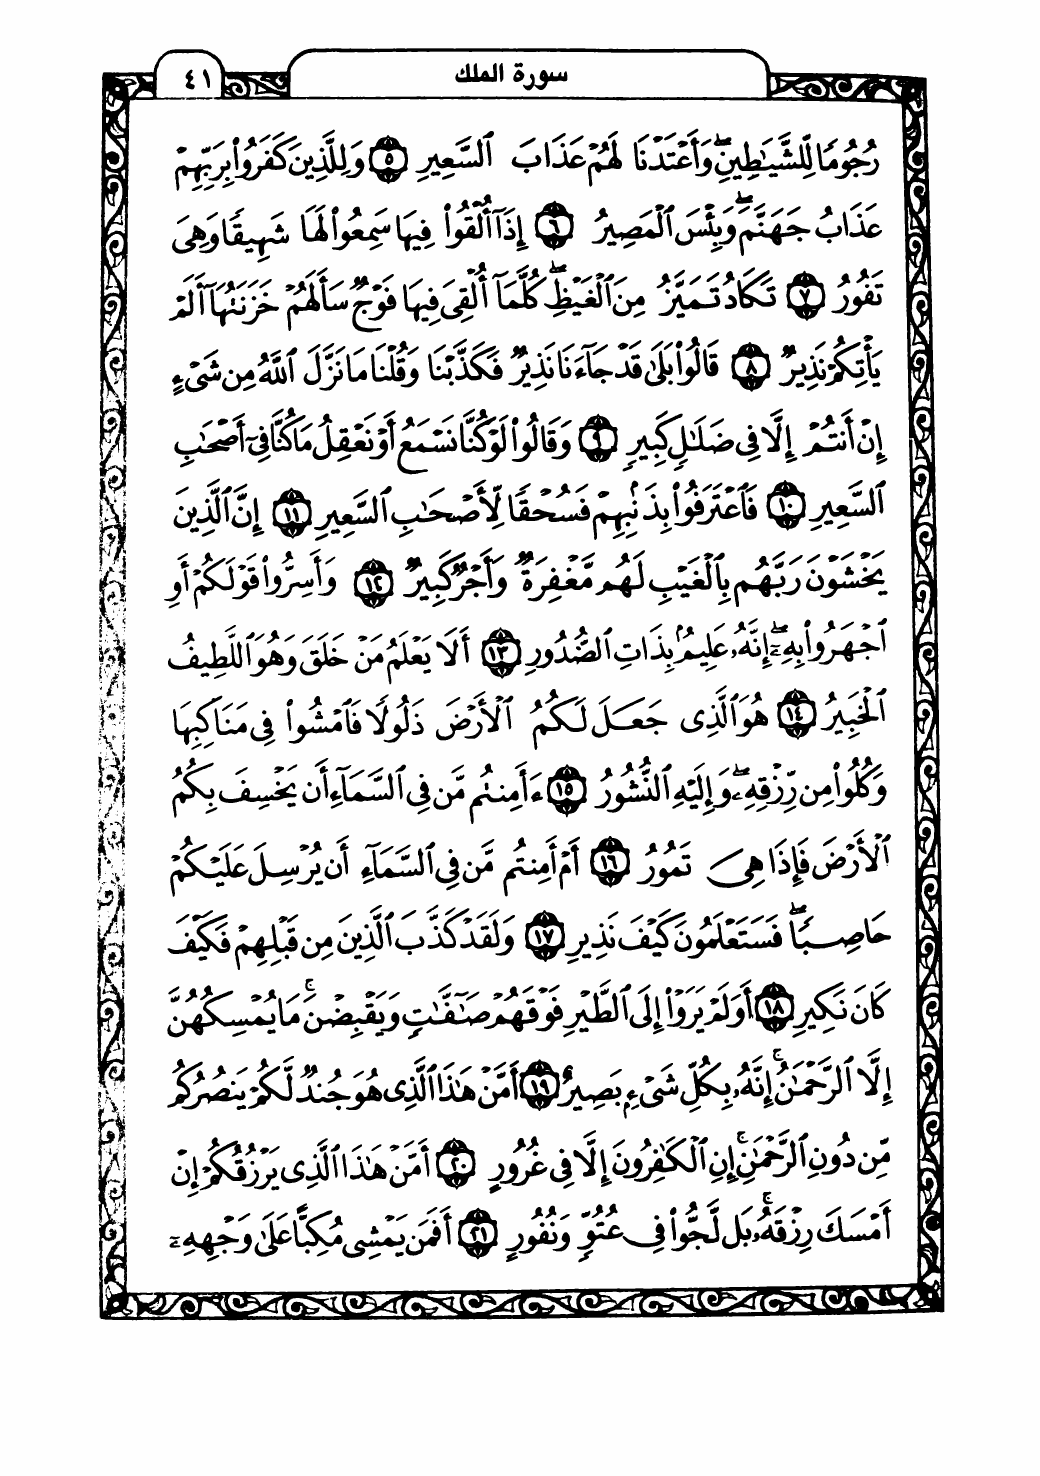 ٤١
سورة الملك
رُجُومًا لِّلشَّيَٰطِينِۖ وَأَعْتَدْنَا لَهُمْ عَذَابَ ٱلسَّعِيرِ ٥ وَلِلَّذِينَ كَفَرُوا۟ بِرَبِّهِمْ
عَذَابُ جَهَنَّمَۖ وَبِئْسَ ٱلْمَصِيرُ ٦ إِذَآ أُلْقُوا۟ فِيهَا سَمِعُوا۟ لَهَا شَهِيقًا وَهِىَ
تَفُورُ ٧ تَكَادُ تَمَيَّزُ مِنَ ٱلْغَيْظِۖ كُلَّمَآ أُلْقِىَ فِيهَا فَوْجٌ سَأَلَهُمْ خَزَنَتُهَآ أَلَمْ
يَأْتِكُمْ نَذِيرٌ ٨ قَالُوا۟ بَلَىٰ قَدْ جَآءَنَا نَذِيرٌ فَكَذَّبْنَا وَقُلْنَا مَا نَزَّلَ ٱللَّهُ مِن شَىْءٍ
إِنْ أَنتُمْ إِلَّا فِى ضَلَٰلٍ كَبِيرٍ ٩ وَقَالُوا۟ لَوْ كُنَّا نَسْمَعُ أَوْ نَعْقِلُ مَا كُنَّا فِىٓ أَصْحَٰبِ
ٱلسَّعِيرِ ١٠ فَٱعْتَرَفُوا۟ بِذَنۢبِهِمْ فَسُحْقًا لِّأَصْحَٰبِ ٱلسَّعِيرِ ١١ إِنَّ ٱلَّذِينَ
يَخْشَوْنَ رَبَّهُم بِٱلْغَيْبِ لَهُم مَّغْفِرَةٌ وَأَجْرٌ كَبِيرٌ ١٢ وَأَسِرُّوا۟ قَوْلَكُمْ أَوِ
ٱجْهَرُوا۟ بِهِۦٓۖ إِنَّهُۥ عَلِيمٌۢ بِذَاتِ ٱلصُّدُورِ ١٣ أَلَا يَعْلَمُ مَنْ خَلَقَ وَهُوَ ٱللَّطِيفُ
ٱلْخَبِيرُ ١٤ هُوَ ٱلَّذِى جَعَلَ لَكُمُ ٱلْأَرْضَ ذَلُولًا فَٱمْشُوا۟ فِى مَنَاكِبِهَا
وَكُلُوا۟ مِن رِّزْقِهِۦۖ وَإِلَيْهِ ٱلنُّشُورُ ١٥ ءَأَمِنتُم مَّن فِى ٱلسَّمَآءِ أَن يَخْسِفَ بِكُمُ
ٱلْأَرْضَ فَإِذَا هِىَ تَمُورُ ١٦ أَمْ أَمِنتُم مَّن فِى ٱلسَّمَآءِ أَن يُرْسِلَ عَلَيْكُمْ
حَاصِبًاۖ فَسَتَعْلَمُونَ كَيْفَ نَذِيرِ ١٧ وَلَقَدْ كَذَّبَ ٱلَّذِينَ مِن قَبْلِهِمْ فَكَيْفَ
كَانَ نَكِيرِ ١٨ أَوَلَمْ يَرَوْا۟ إِلَى ٱلطَّيْرِ فَوْقَهُمْ صَٰٓفَّٰتٍ وَيَقْبِضْنَۚ مَا يُمْسِكُهُنَّ
إِلَّا ٱلرَّحْمَٰنُۚ إِنَّهُۥ بِكُلِّ شَىْءٍۭ بَصِيرٌ ١٩ أَمَّنْ هَٰذَا ٱلَّذِى هُوَ جُندٌ لَّكُمْ يَنصُرُكُم
مِّن دُونِ ٱلرَّحْمَٰنِۚ إِنِ ٱلْكَٰفِرُونَ إِلَّا فِى غُرُورٍ ٢٠ أَمَّنْ هَٰذَا ٱلَّذِى يَرْزُقُكُمْ إِنْ
أَمْسَكَ رِزْقَهُۥۚ بَل لَّجُّوا۟ فِى عُتُوٍّ وَنُفُورٍ ٢١ أَفَمَن يَمْشِى مُكِبًّا عَلَىٰ وَجْهِهِۦٓ